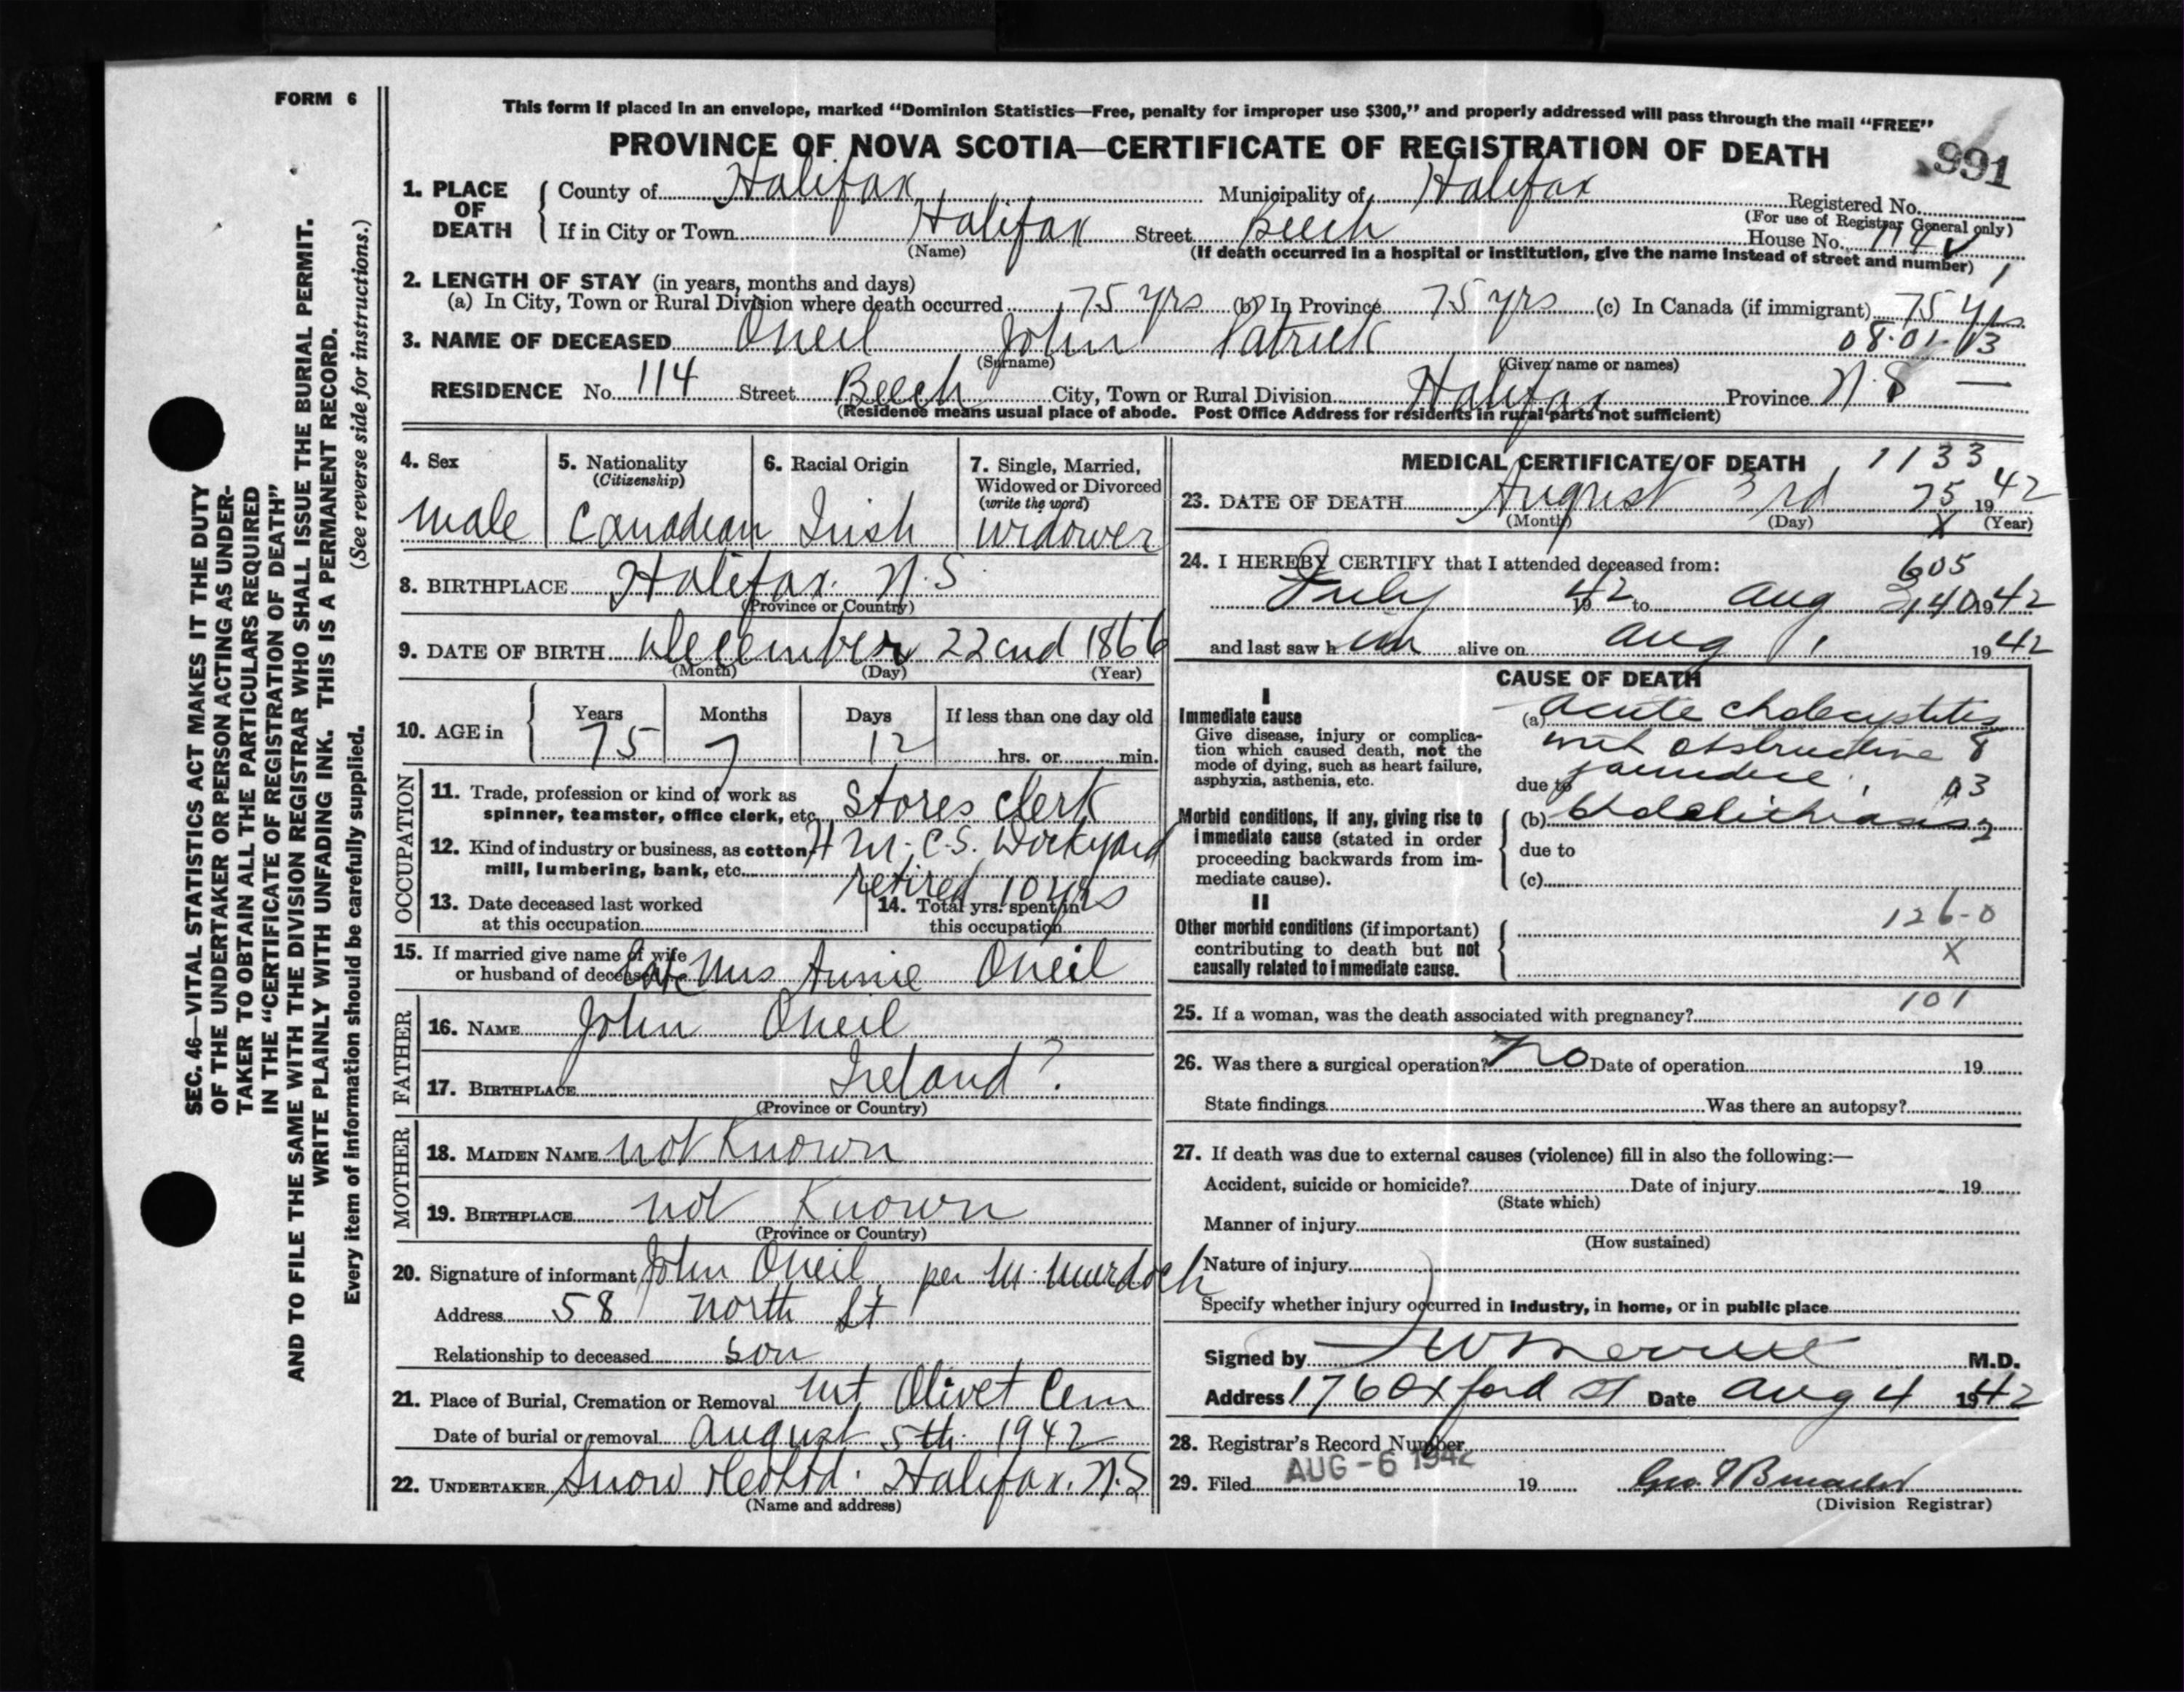 FORM 6
This form if placed in an envelope, marked “Dominion Statistics—Free, penalty for improper use $300,” and properly addressed will pass through the mail “FREE”
PROVINCE OF NOVA SCOTIA—CERTIFICATE OF REGISTRATION OF DEATH
991
1. PLACE OF DEATH
County of Halifax Municipality of Halifax Registered No.
(For use of Registrar General only)
If in City or Town Halifax Street Beech House No. 114
(Name) (If death occurred in a hospital or institution, give the name instead of street and number) 1
2. LENGTH OF STAY (in years, months and days)
(a) In City, Town or Rural Division where death occurred 75 yrs (b) In Province 75 yrs (c) In Canada (if immigrant) 75 yrs
08.01.13
3. NAME OF DECEASED Oneil John Patrick
(Surname) (Given name or names)
RESIDENCE No. 114 Street Beech City, Town or Rural Division Halifax Province N.S —
(Residence means usual place of abode. Post Office Address for residents in rural parts not sufficient)
4. Sex
male
5. Nationality
(Citizenship)
Canadian
6. Racial Origin
Irish
7. Single, Married,
Widowed or Divorced
(write the word)
widower
8. BIRTHPLACE Halifax. N.S.
(Province or Country)
9. DATE OF BIRTH December 22cnd 1866
(Month) (Day) (Year)
10. AGE in
Years Months Days If less than one day old
75 7 12 hrs. or min.
OCCUPATION
11. Trade, profession or kind of work as
spinner, teamster, office clerk, etc. Stores clerk
12. Kind of industry or business, as cotton H.M.C.S. Dockyard
mill, lumbering, bank, etc.
retired 10 yrs
13. Date deceased last worked
at this occupation
14. Total yrs. spent in
this occupation
15. If married give name of wife
or husband of deceased Late Mrs Annie Oneil
FATHER
16. NAME John Oneil
17. BIRTHPLACE Ireland?
(Province or Country)
MOTHER
18. MAIDEN NAME not Known
19. BIRTHPLACE not Known
(Province or Country)
20. Signature of informant John Oneil per M. Murdoch
Address 58 North St
Relationship to deceased son
21. Place of Burial, Cremation or Removal Mt Olivet Cem
Date of burial or removal August 5th. 1942
22. UNDERTAKER Snow &Co Ltd. Halifax. N.S
(Name and address)
MEDICAL CERTIFICATE OF DEATH 1133
23. DATE OF DEATH August 3rd 75 1942
(Month) (Day) X (Year)
24. I HEREBY CERTIFY that I attended deceased from:
605
July 1942 to Aug 1942
and last saw him alive on Aug 1, 1942
CAUSE OF DEATH
I
Immediate cause
Give disease, injury or complica-
tion which caused death, not the
mode of dying, such as heart failure,
asphyxia, asthenia, etc.
(a) Acute cholecystitis
with obstructive 8
due to jaundice. 03
Morbid conditions, if any, giving rise to
immediate cause (stated in order
proceeding backwards from im-
mediate cause).
(b) Cholelithiasis 2
due to
(c)
II
Other morbid conditions (if important)
contributing to death but not
causally related to immediate cause.
126-0
X
101
25. If a woman, was the death associated with pregnancy?
26. Was there a surgical operation? no Date of operation 19
State findings Was there an autopsy?
27. If death was due to external causes (violence) fill in also the following:—
Accident, suicide or homicide? Date of injury 19
(State which)
Manner of injury
(How sustained)
Nature of injury
Specify whether injury occurred in industry, in home, or in public place
Signed by M.D.
Address 176 Oxford St Date Aug 4 1942
28. Registrar's Record Number
29. Filed AUG-6 1942 19
(Division Registrar)
SEC. 46—VITAL STATISTICS ACT MAKES IT THE DUTY
OF THE UNDERTAKER OR PERSON ACTING AS UNDER-
TAKER TO OBTAIN ALL THE PARTICULARS REQUIRED
IN THE “CERTIFICATE OF REGISTRATION OF DEATH”
AND TO FILE THE SAME WITH THE DIVISION REGISTRAR WHO SHALL ISSUE THE BURIAL PERMIT.
WRITE PLAINLY WITH UNFADING INK. THIS IS A PERMANENT RECORD.
Every item of information should be carefully supplied. (See reverse side for instructions.)